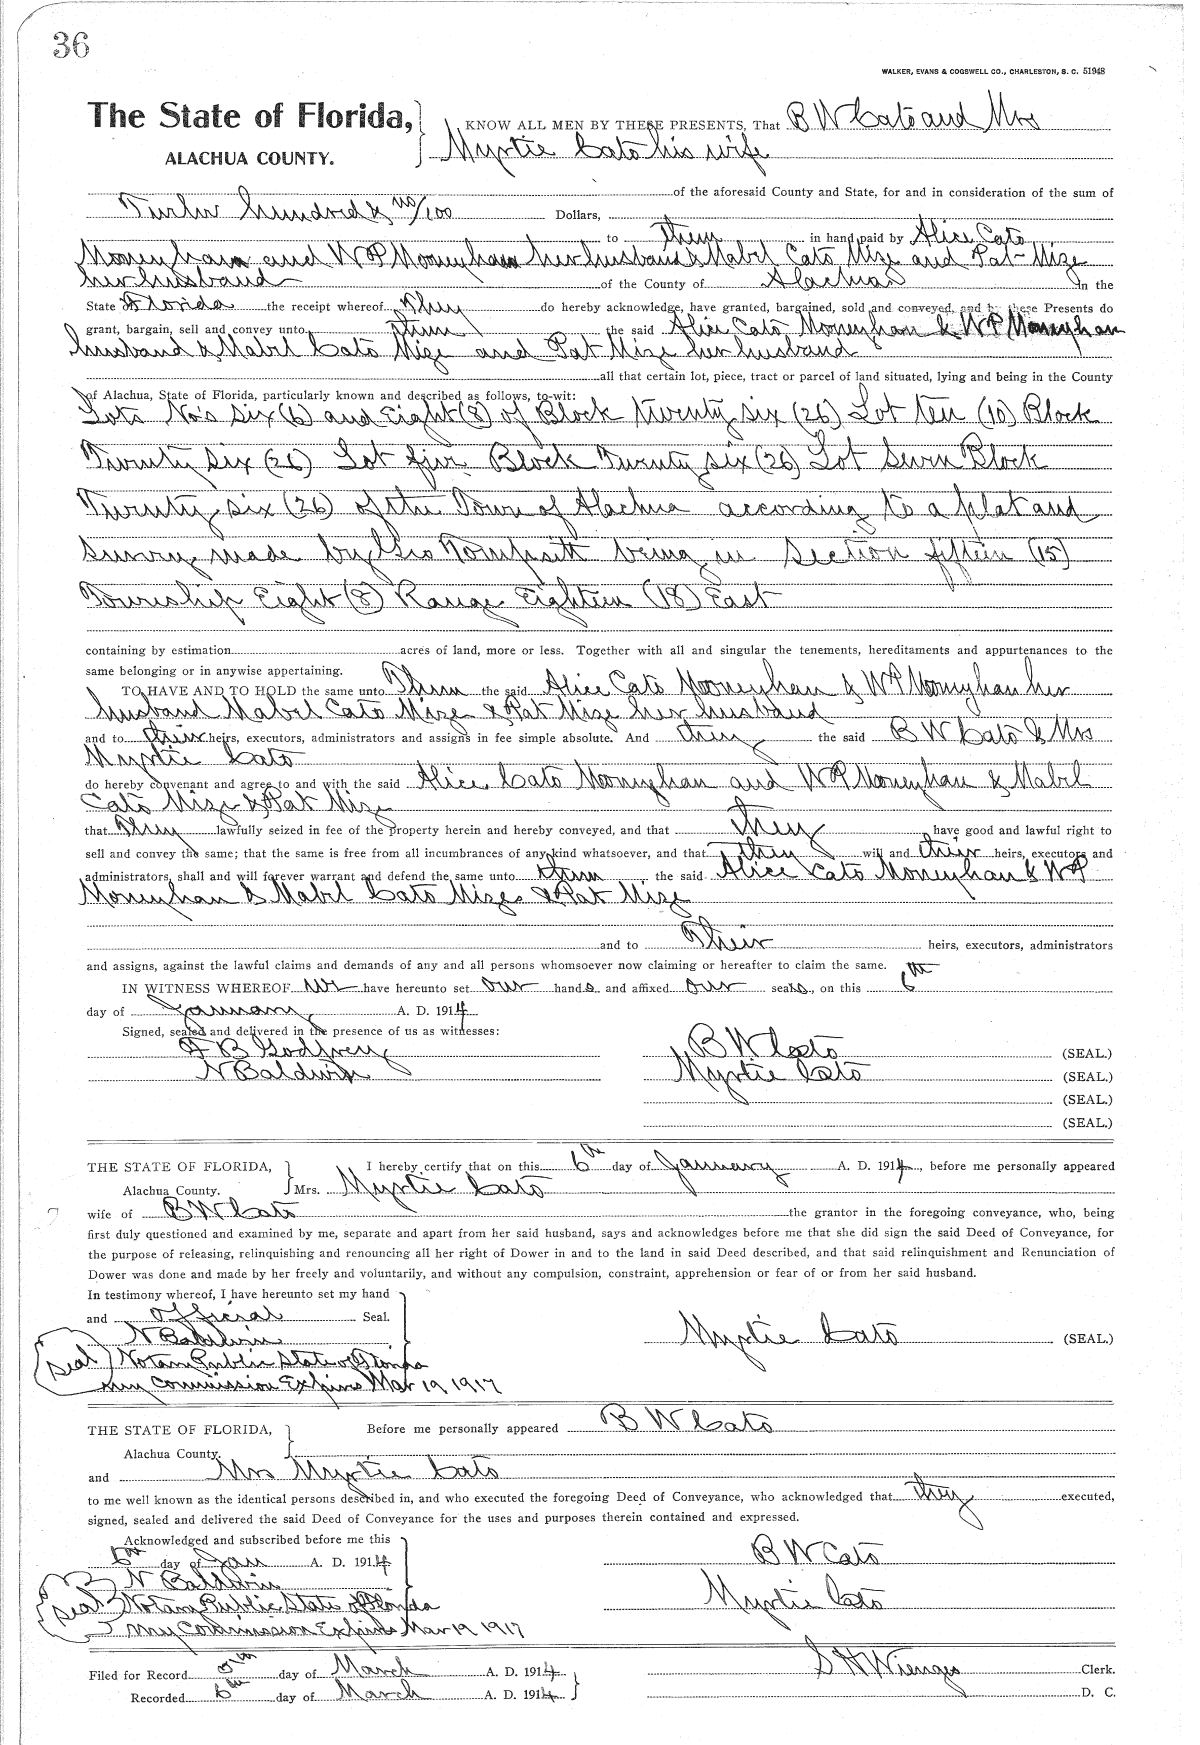 36
WALKER, EVANS & COGSWELL CO., CHARLESTON, S. C. 51948
The State of Florida,
ALACHUA COUNTY.
KNOW ALL MEN BY THESE PRESENTS, That B W Cato and Mrs
Myrtie Cato his wife
of the aforesaid County and State, for and in consideration of the sum of
Twelve hundred & no/100 Dollars,
to them in hand paid by Alice Cato
Mooneyham and W P Mooneyham her husband & Mabel Cato Mize and Pat Mize
her husband of the County of Alachua In the
State of Florida the receipt whereof they do hereby acknowledge, have granted, bargained, sold and conveyed, and by these Presents do
grant, bargain, sell and convey unto them the said Alice Cato Moneyhan & W P Moneyhan
husband & Mabel Cato Mize and Pat Mize her husband
all that certain lot, piece, tract or parcel of land situated, lying and being in the County
of Alachua, State of Florida, particularly known and described as follows, to-wit:
Lots No's Six (6) and Eight (8) of Block Twenty six (26) Lot Ten (10) Block
Twenty Six (26) Lot five Block Twenty six (26) Lot Seven Block
Twenty six (26) of the Town of Alachua according to a plat and
Survey made by Geo being in Section fifteen (15)
Township Eight (8) Range Eighteen (18) East
containing by estimation acres of land, more or less. Together with all and singular the tenements, hereditaments and appurtenances to the
same belonging or in anywise appertaining.
TO HAVE AND TO HOLD the same unto Them the said Alice Cato Mooneyhan & W P Mooneyhan her
husband Mabel Cato Mize & Pat Mize her husband
and to their heirs, executors, administrators and assigns in fee simple absolute. And they the said B W Cato & Mrs
Myrtie Cato
do hereby convenant and agree to and with the said Alice Cato Mooneyhan and W P Mooneyhan & Mabel
Cato Mize & Pat Mize
that They lawfully seized in fee of the property herein and hereby conveyed, and that they have good and lawful right to
sell and convey the same; that the same is free from all incumbrances of any kind whatsoever, and that they will and their heirs, executors and
administrators, shall and will forever warrant and defend the same unto them the said Alice Cato Moneyhan & W P
Moneyhan & Mabel Cato Mize & Pat Mize
and to Their heirs, executors, administrators
and assigns, against the lawful claims and demands of any and all persons whomsoever now claiming or hereafter to claim the same.
IN WITNESS WHEREOF We have hereunto set our hands and affixed our seals, on this 6th
day of January A. D. 1914
Signed, sealed and delivered in the presence of us as witnesses:
F B Godfrey B W Cato (SEAL.)
N Baldwin Myrtie Cato (SEAL.)
(SEAL.)
(SEAL.)
THE STATE OF FLORIDA, I hereby certify that on this 6th day of January A. D. 1914, before me personally appeared
Alachua County. Mrs. Myrtie Cato
wife of B W Cato the grantor in the foregoing conveyance, who, being
first duly questioned and examined by me, separate and apart from her said husband, says and acknowledges before me that she did sign the said Deed of Conveyance, for
the purpose of releasing, relinquishing and renouncing all her right of Dower in and to the land in said Deed described, and that said relinquishment and Renunciation of
Dower was done and made by her freely and voluntarily, and without any compulsion, constraint, apprehension or fear of or from her said husband.
In testimony whereof, I have hereunto set my hand
and official Seal.
N Baldwin Myrtie Cato (SEAL.)
(Seal) Notary Public State of Florida
My Commission Expires Mar 19 1917
THE STATE OF FLORIDA, Before me personally appeared B W Cato
Alachua County.
and Mrs Myrtie Cato
to me well known as the identical persons described in, and who executed the foregoing Deed of Conveyance, who acknowledged that they executed,
signed, sealed and delivered the said Deed of Conveyance for the uses and purposes therein contained and expressed.
Acknowledged and subscribed before me this
6th day of Jan A. D. 1914 B W Cato
N Baldwin Myrtie Cato
(Seal) Notary Public State of Florida
My Commission Expires Mar 19 1917
Filed for Record 5th day of March A. D. 1914 S H Wienges Clerk.
Recorded 6th day of March A. D. 1914 D. C.